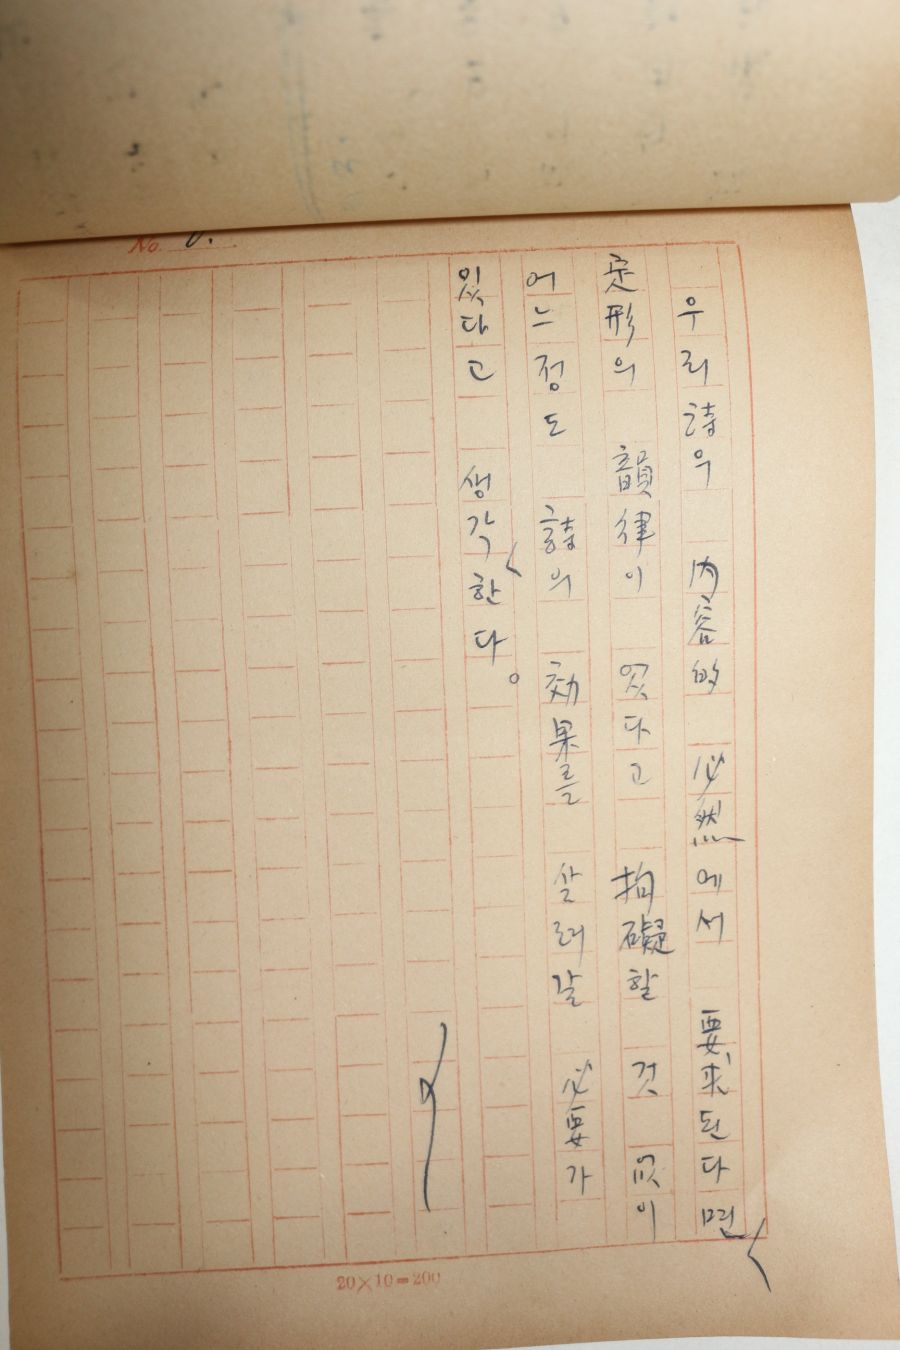 No. 6.
우리 詩의 內容的 必然에서 要求된다면
定形의 韻律이 없다고 拘礙할 것 없이
어느 정도 詩의 効果를 살려갈 必要가
있다고 생각한다。
20×10=200